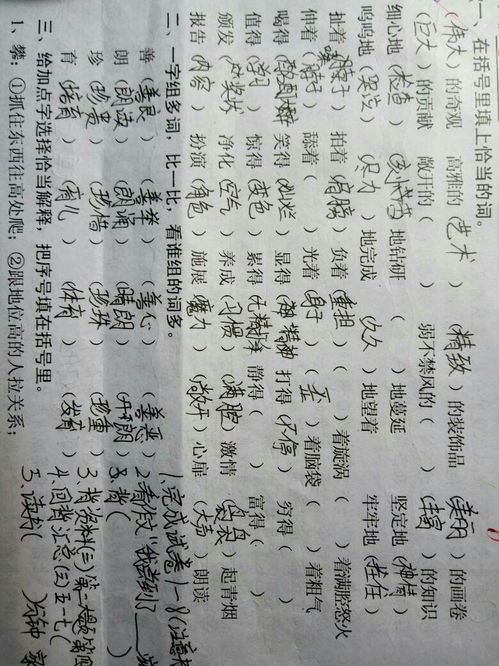 一、在括号里填上恰当的词。
(伟大)的奇观 高雅的(艺术) (精致)的装饰品 (美丽)的画卷
(巨大)的贡献 敞开的( ) 弱不禁风的( ) (丰富)的知识
细心地(检查) ( )地钻研 ( )地蔓延 坚定地( )
呜呜地(哭泣) (尽力)地完成 (久久)地望着 牢牢地(拴住)
扯着( ) 拍着(肩膀) 负着(重担) ( )着旋涡 ( )着满腔怒火
伸着(脖子) 舔着( ) 光着(身子) ( )着脑袋 ( )着粗气
喝得( ) 笑得(灿烂) 显得( 精神) 打得(不停) 穷得( )
值得(学习) 惊得(变色) 累得( ) 静得( ) 富得( )
颁发(奖状) 净化(空气) 养成(习惯) (满腔)激情 (袅袅)起青烟
报告(内容) 扮演(角色) 施展(魔力) (敞开)心扉 (大声)朗读
二、一字组多词,比一比,看谁组的词多。
善(善良)(善举)(善心)(善恶)
朗(朗读)(朗诵)(晴朗)(开朗)
珍(珍贵)(珍惜)(珍珠)(珍重)
育(培育)(育儿)(体育)(发育)
三、给加点字选择恰当解释,把序号填在括号里。
1、攀:①抓住东西往高处爬;②跟地位高的人拉关系;
1.完成试卷1-8(注意
2.看作文"
3.背资料(三)第
4.回背汇总(三)五-七(
5.读书( )分钟